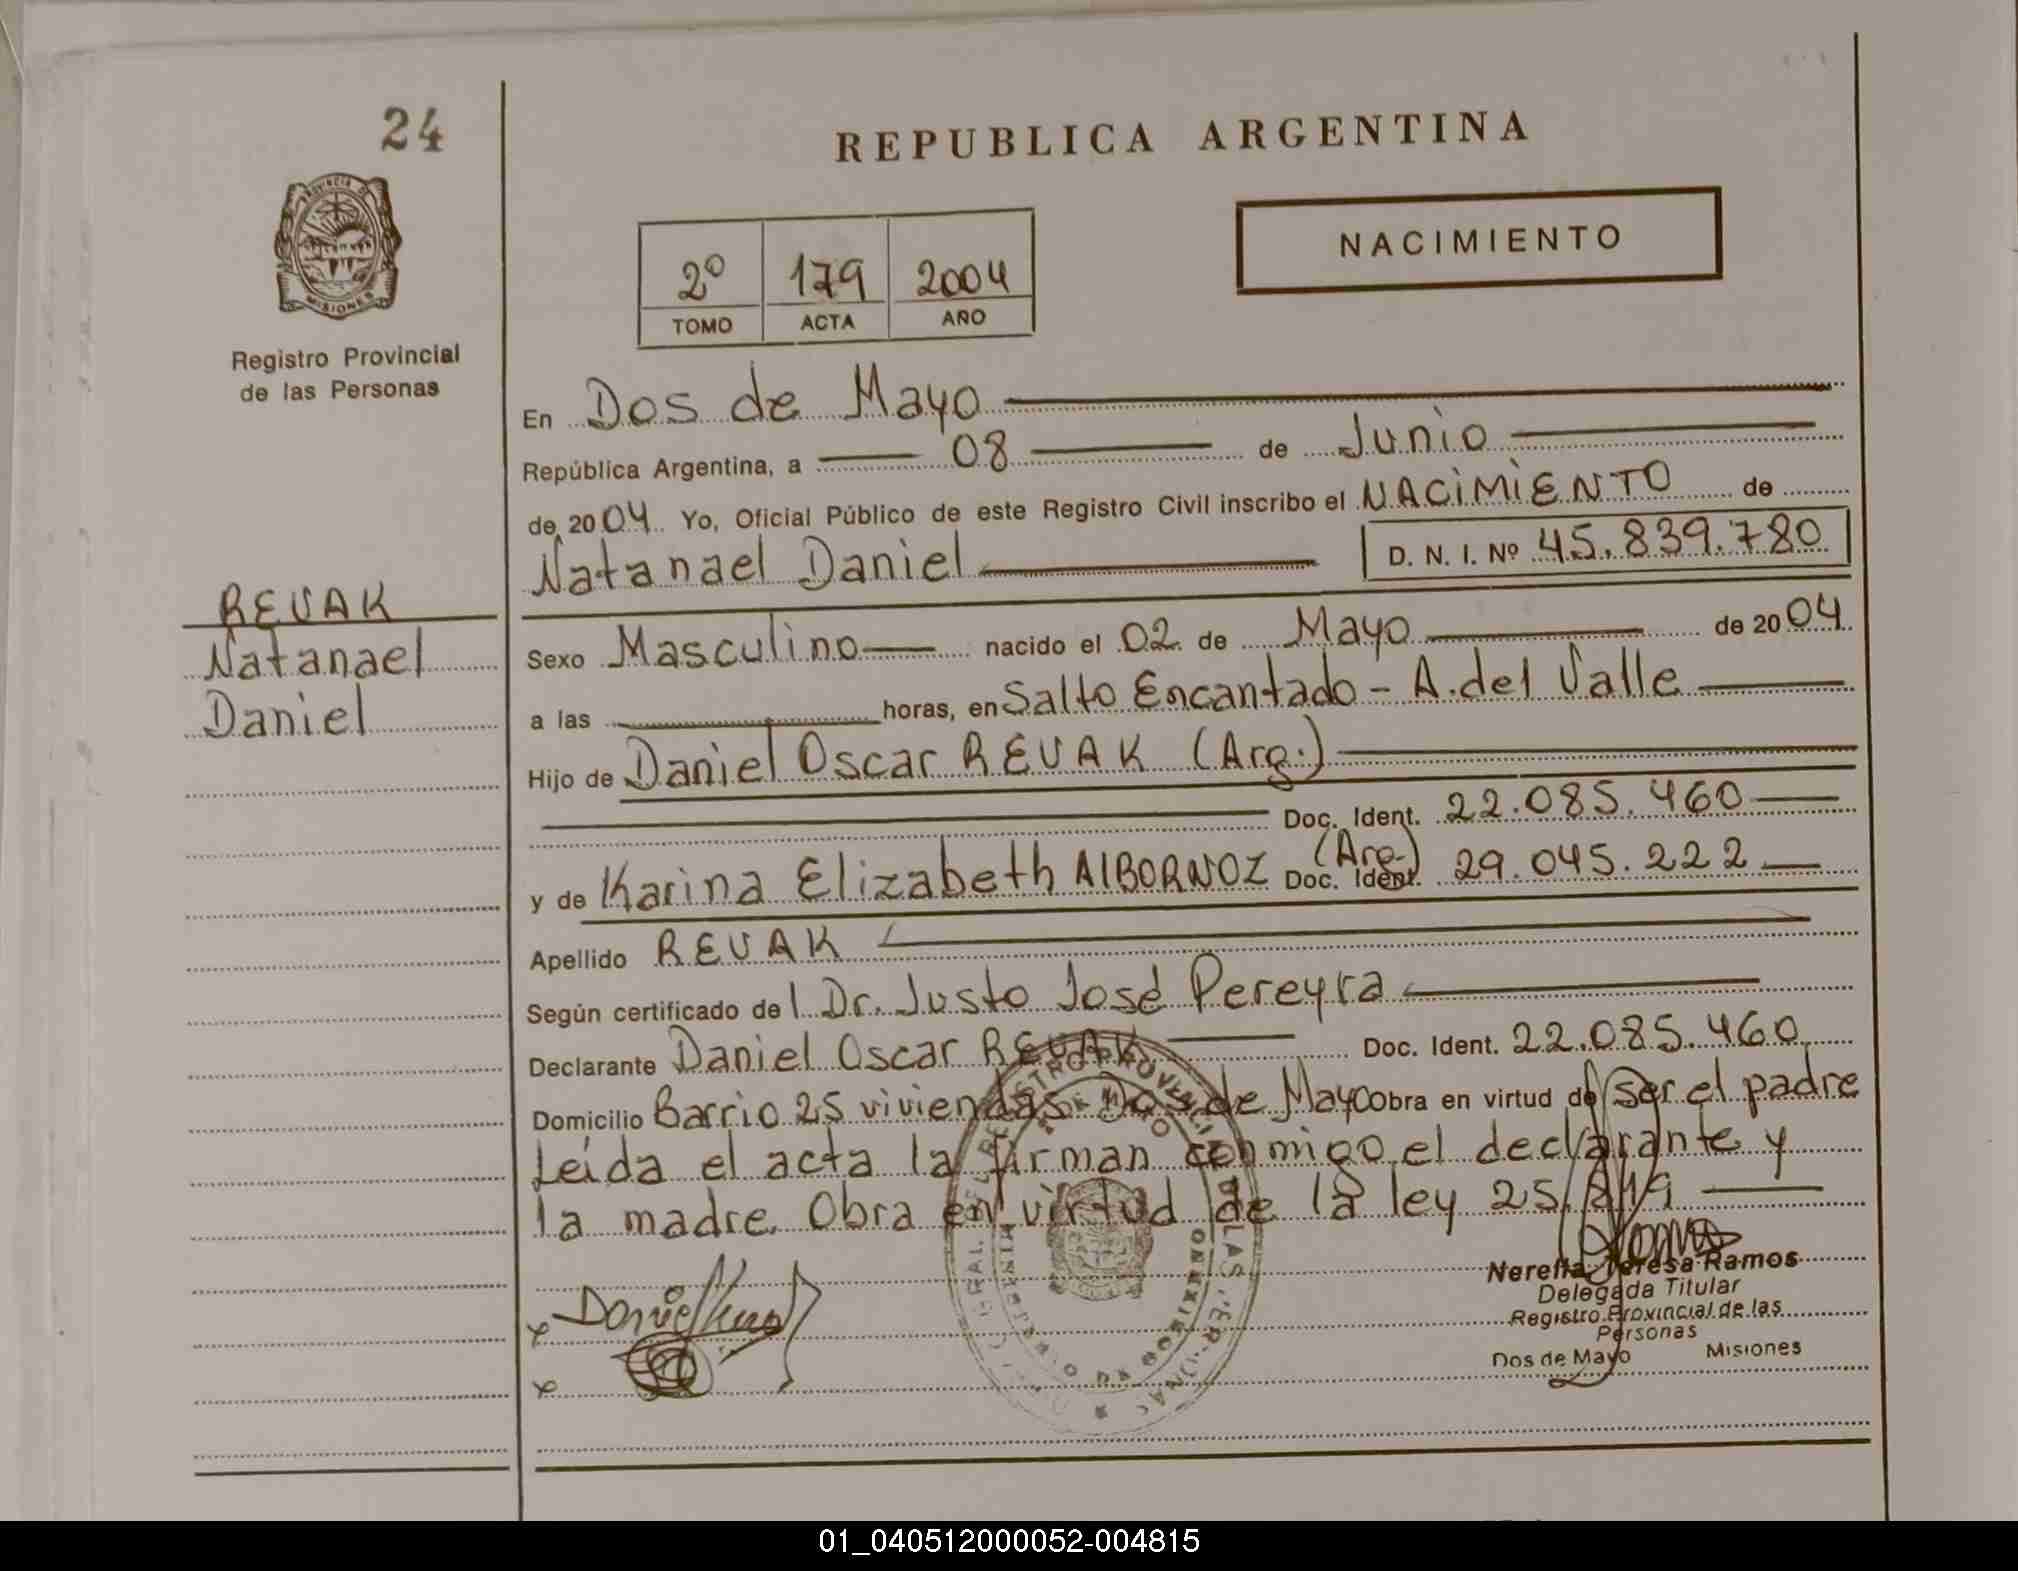 24
REPUBLICA ARGENTINA
PROVINCIA DE
MISIONES
Registro Provincial
de las Personas
NACIMIENTO
2º 179 2004
TOMO ACTA AÑO
En Dos de Mayo
República Argentina, a 08 de Junio
de 2004 Yo, Oficial Público de este Registro Civil inscribo el NACIMIENTO de
Natanael Daniel D. N. I. Nº 45.839.780
REVAK
Natanael
Daniel
Sexo Masculino nacido el 02 de Mayo de 2004
a las horas, en Salto Encantado - A. del Valle
Hijo de Daniel Oscar REVAK (Arg.)
Doc. Ident. 22.085.460
y de Karina Elizabeth AlBORNOZ (Arg.) Doc. Ident. 29.045.222
Apellido REVAK
Según certificado de l Dr. Justo José Pereyra
Declarante Daniel Oscar REVAK Doc. Ident. 22.085.460
Domicilio Barrio 25 viviendas - Dos de Mayo Obra en virtud de Ser el padre
Leída el acta la firman conmigo el declarante y
la madre. Obra en virtud de la ley 25.819
Nerella Teresa Ramos
Delegada Titular
Registro Provincial de las
Personas
Dos de Mayo Misiones
01_040512000052-004815